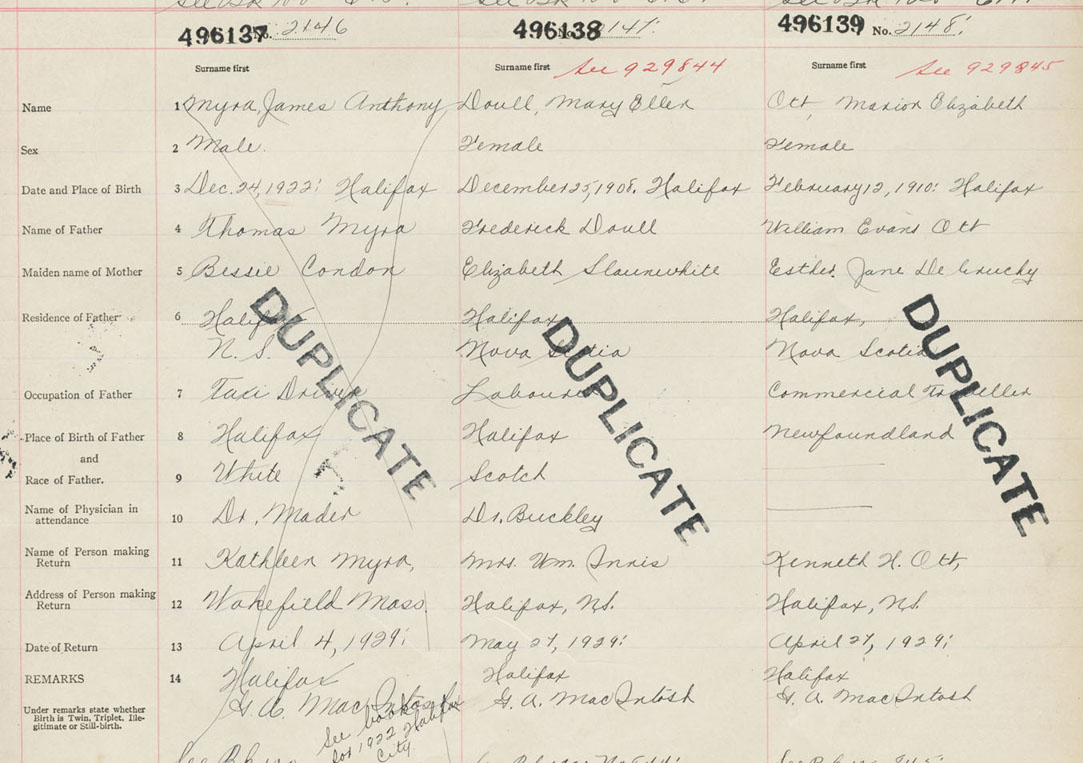 496137 No. 2146 496138 No. 2147. 496139 No. 2148.
Surname first Surname first See 929844 Surname first See 929845
Name 1 Myra, James Anthony Doull, Mary Ellen Ott, Marion Elizabeth
Sex 2 Male. Female Female
Date and Place of Birth 3 Dec. 24, 1922. Halifax December 25, 1908. Halifax February 12, 1910. Halifax
Name of Father 4 Thomas Myra Frederick Doull William Evans Ott
Maiden name of Mother 5 Bessie Condon Elizabeth Slaunwhite Esther Jane De Gruchy
Residence of Father 6 Halifax Halifax Halifax,
N. S. Nova Scotia Nova Scotia
Occupation of Father 7 Taxi Driver Labourer Commercial Traveller
Place of Birth of Father 8 Halifax Halifax Newfoundland
and
Race of Father. 9 White Scotch
Name of Physician in
attendance 10 Dr. Mader Dr. Buckley
Name of Person making
Return 11 Kathleen Myra, Mrs. Wm. Innis Kenneth H. Ott,
Address of Person making
Return 12 Wakefield Mass. Halifax, N.S. Halifax, N.S.
Date of Return 13 April 4, 1929. May 27, 1929. April 27, 1929.
REMARKS 14 Halifax Halifax Halifax
G. A. MacIntosh G. A. MacIntosh G. A. MacIntosh
Under remarks state whether
Birth is Twin, Triplet, Ille-
gitimate or Still-birth.
See books
for 1922 Halifax
City
DUPLICATE
DUPLICATE
DUPLICATE